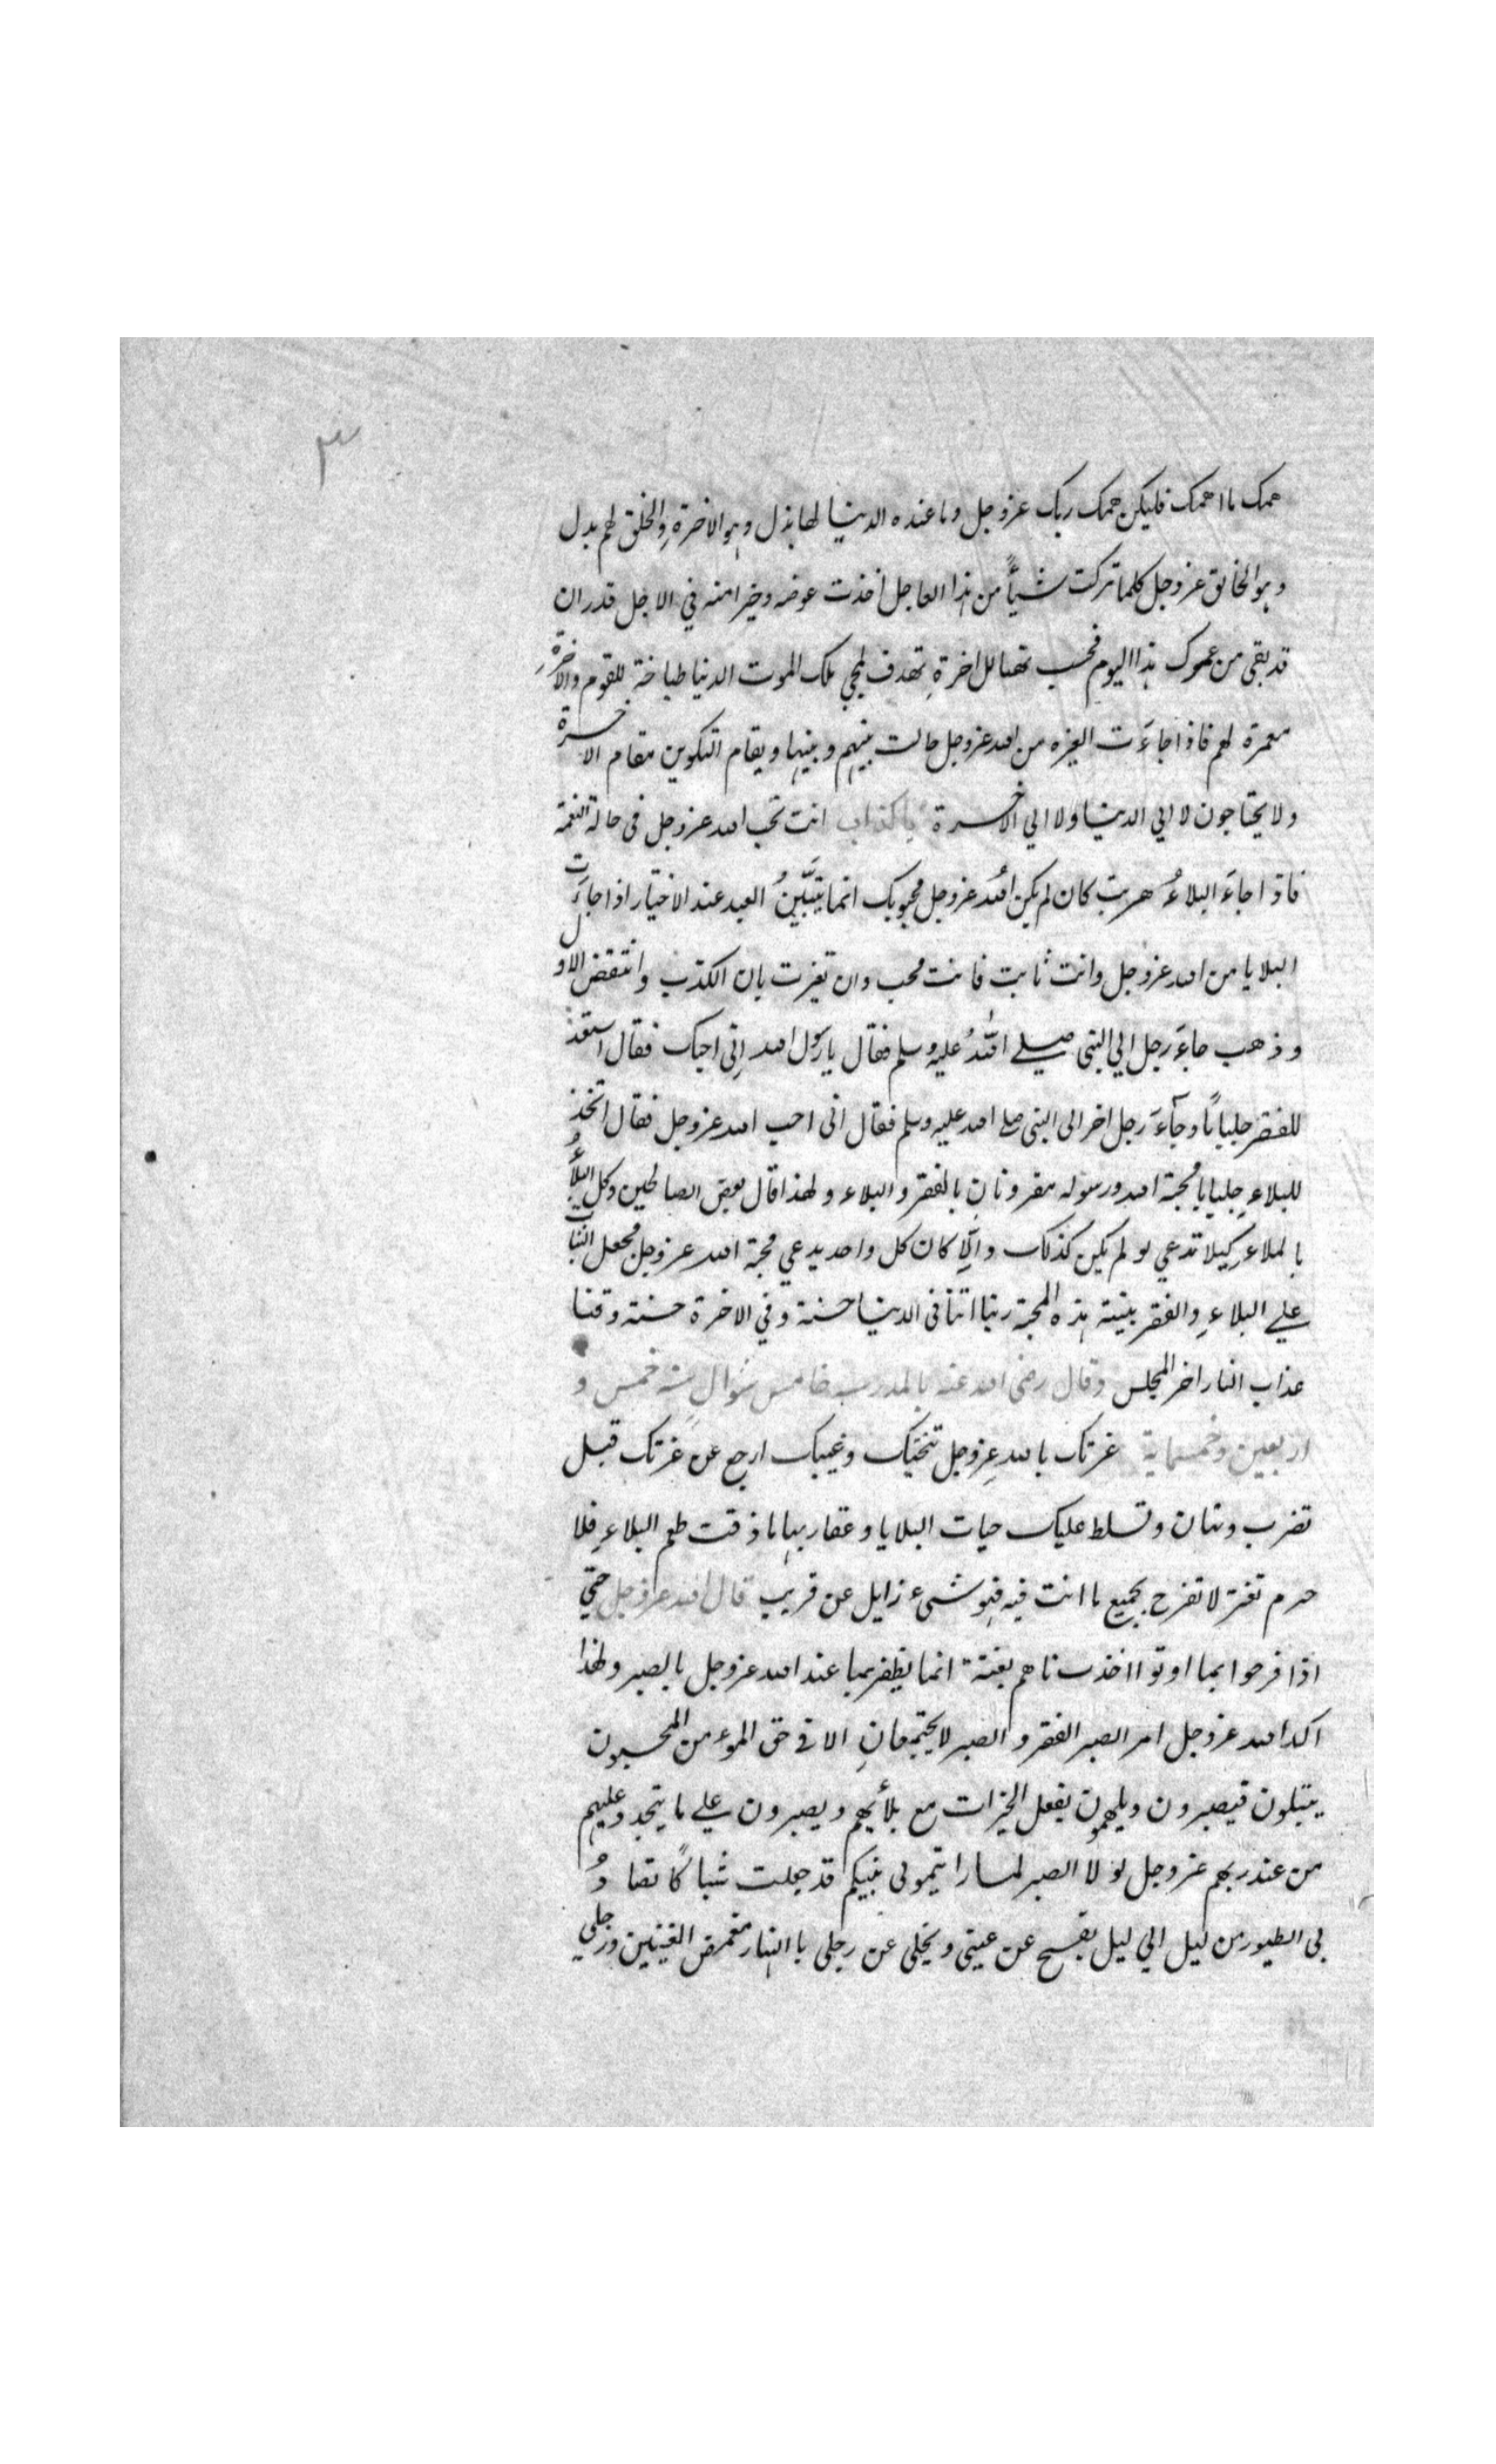 ٣
همك ما اهمك فليكن همك ربك عزوجل وما عنده الدنيا لها بدل وهو الاخرة والخلق لهم بدل
وهو الخالق عزوجل كلما تركت شيأً من هذا العاجل اخذت عوضه وخيرا منه في الاجل قدر ان
قد بقى من عمرك هذا اليوم فحسب تهيا للاخرةِ تهدف لمجي ملك الموت الدنيا طباخة للقوم والاخرةِ
معمرة لهم فاذا جاءَت الغيره من الله عزوجل حالت بينهم وبينها ويقام التكوين مقام الاخرة
ولا يحتاجون لا الي الدنيا ولا الي الاخرة يا كذاب انت تحب الله عزوجل فى حالة النعمة
فاذا جاءَ البلاءُ هربت كان لم يكن الله عزوجل محبوبك انما يتبَّينُ العبد عند الاختبار اذا جاءَت
البلايا من الله عزوجل وانت ثابت فانت محب وان تغيرت بان الكذب وانتقض الاول
وذهب جاءَ رجل الي النبى صلي اللهُ عليه وسلم فقال يا رسول الله اِنّى احبك فقال استعد
للفقر جلباباً وجآءَ رجل اخر الى النبى صلى الله عليه وسلم فقال انى احب الله عزوجل فقال اتخذ
للبلاءِ جلبابا محبة الله ورسوله مقرونانِ بالفقر والبلاء ولهذا قال بعض الصالحين وكل البلأُ
بالملاءِ كيلا تدعي لو لم يكن كذلك والّا كان كل واحد يدعي محبة الله عزوجل فجعل الثباب
علي البلاءِ والفقر بينة هذه المحبة ربنا اتنا فى الدنيا حسنة وفي الاخرة حسنة وقنا
عذاب النار اخر المجلس وقال رضى الله عنه بالمدرسة خامس شوال سنة خمس و
اربعين وخمسماية غرتك بالله عزوجل تنحيك وغيبك ارجع عن غرتك قبل
تضرب وتهان وتسلط عليك حيات البلايا وعقاربها ما ذقت طعم البلاءِ فلا
جرم تغتر لا تفرح بجميع ما انت فيه فهو شىء زايل عن قريب قال الله عزوجل حتي
اذا فرحوا بما اوتوا اخذناهم بغتة انما يظفر بما عند الله عزوجل بالصبر ولهذا
اكد الله عزوجل امر الصبر الفقر والصبر لا يجتمعانِ الا فى حق المؤمن المحبون
يبتلون فيصبرون ويلهمون بفعل الخيرات مع بلائهم ويصبرون علي ما يتجدد عليهم
من عند ربهم عزوجل لولا الصبر لما رايتمونى بينكم قد جعلت شباكاً تصادُ
بى الطيور من ليل الي ليل يفسح عن عينى ويخلى عن رجلى بالنهار مغمض العينين ورجلي